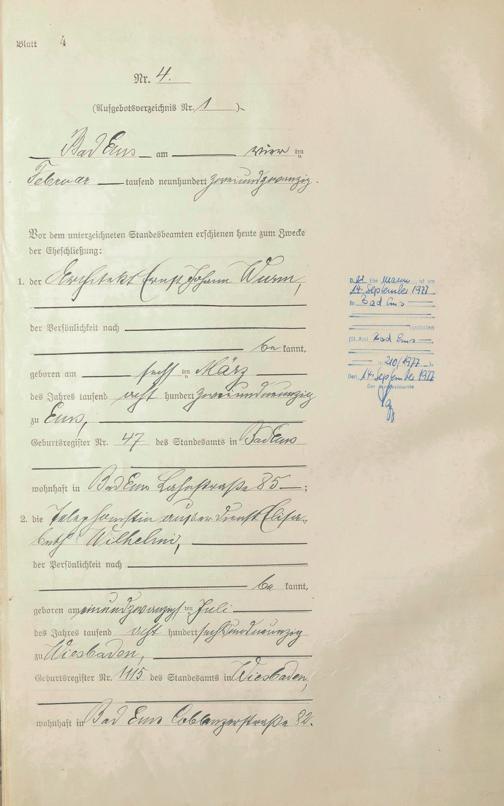 Blatt 4
Nr. 4.
(Aufgebotsverzeichnis Nr. 1 ).
Bad Ems am vier ten
Februar tausend neunhundert zweiundzwanzig.
Vor dem unterzeichneten Standesbeamten erschienen heute zum Zwecke
der Eheschließung:
1. der Architekt Ernst Johann Wurm,
der Persönlichkeit nach
be kannt,
geboren am sechs ten März
des Jahres tausend acht hundert zweiundneunzig
zu Ems,
Geburtsregister Nr. 47 des Standesamts in Bad Ems
wohnhaft in Bad Ems Lahnstraße 85 ;
2. die Telephonistin außer Dienst Elisa-
beth Wilhelmi,
der Persönlichkeit nach
be kannt,
geboren am einundzwanzigs ten Juli
des Jahres tausend acht hundert sechsundneunzig
zu Wiesbaden,
Geburtsregister Nr. 1115 des Standesamts in Wiesbaden,
wohnhaft in Bad Ems Coblenzerstraße 82.
Mann ist am
14. September 1977
in Bad Ems
verstorben
Bad Ems
210/1977
Den 14. September 1977
Der Standesbeamte